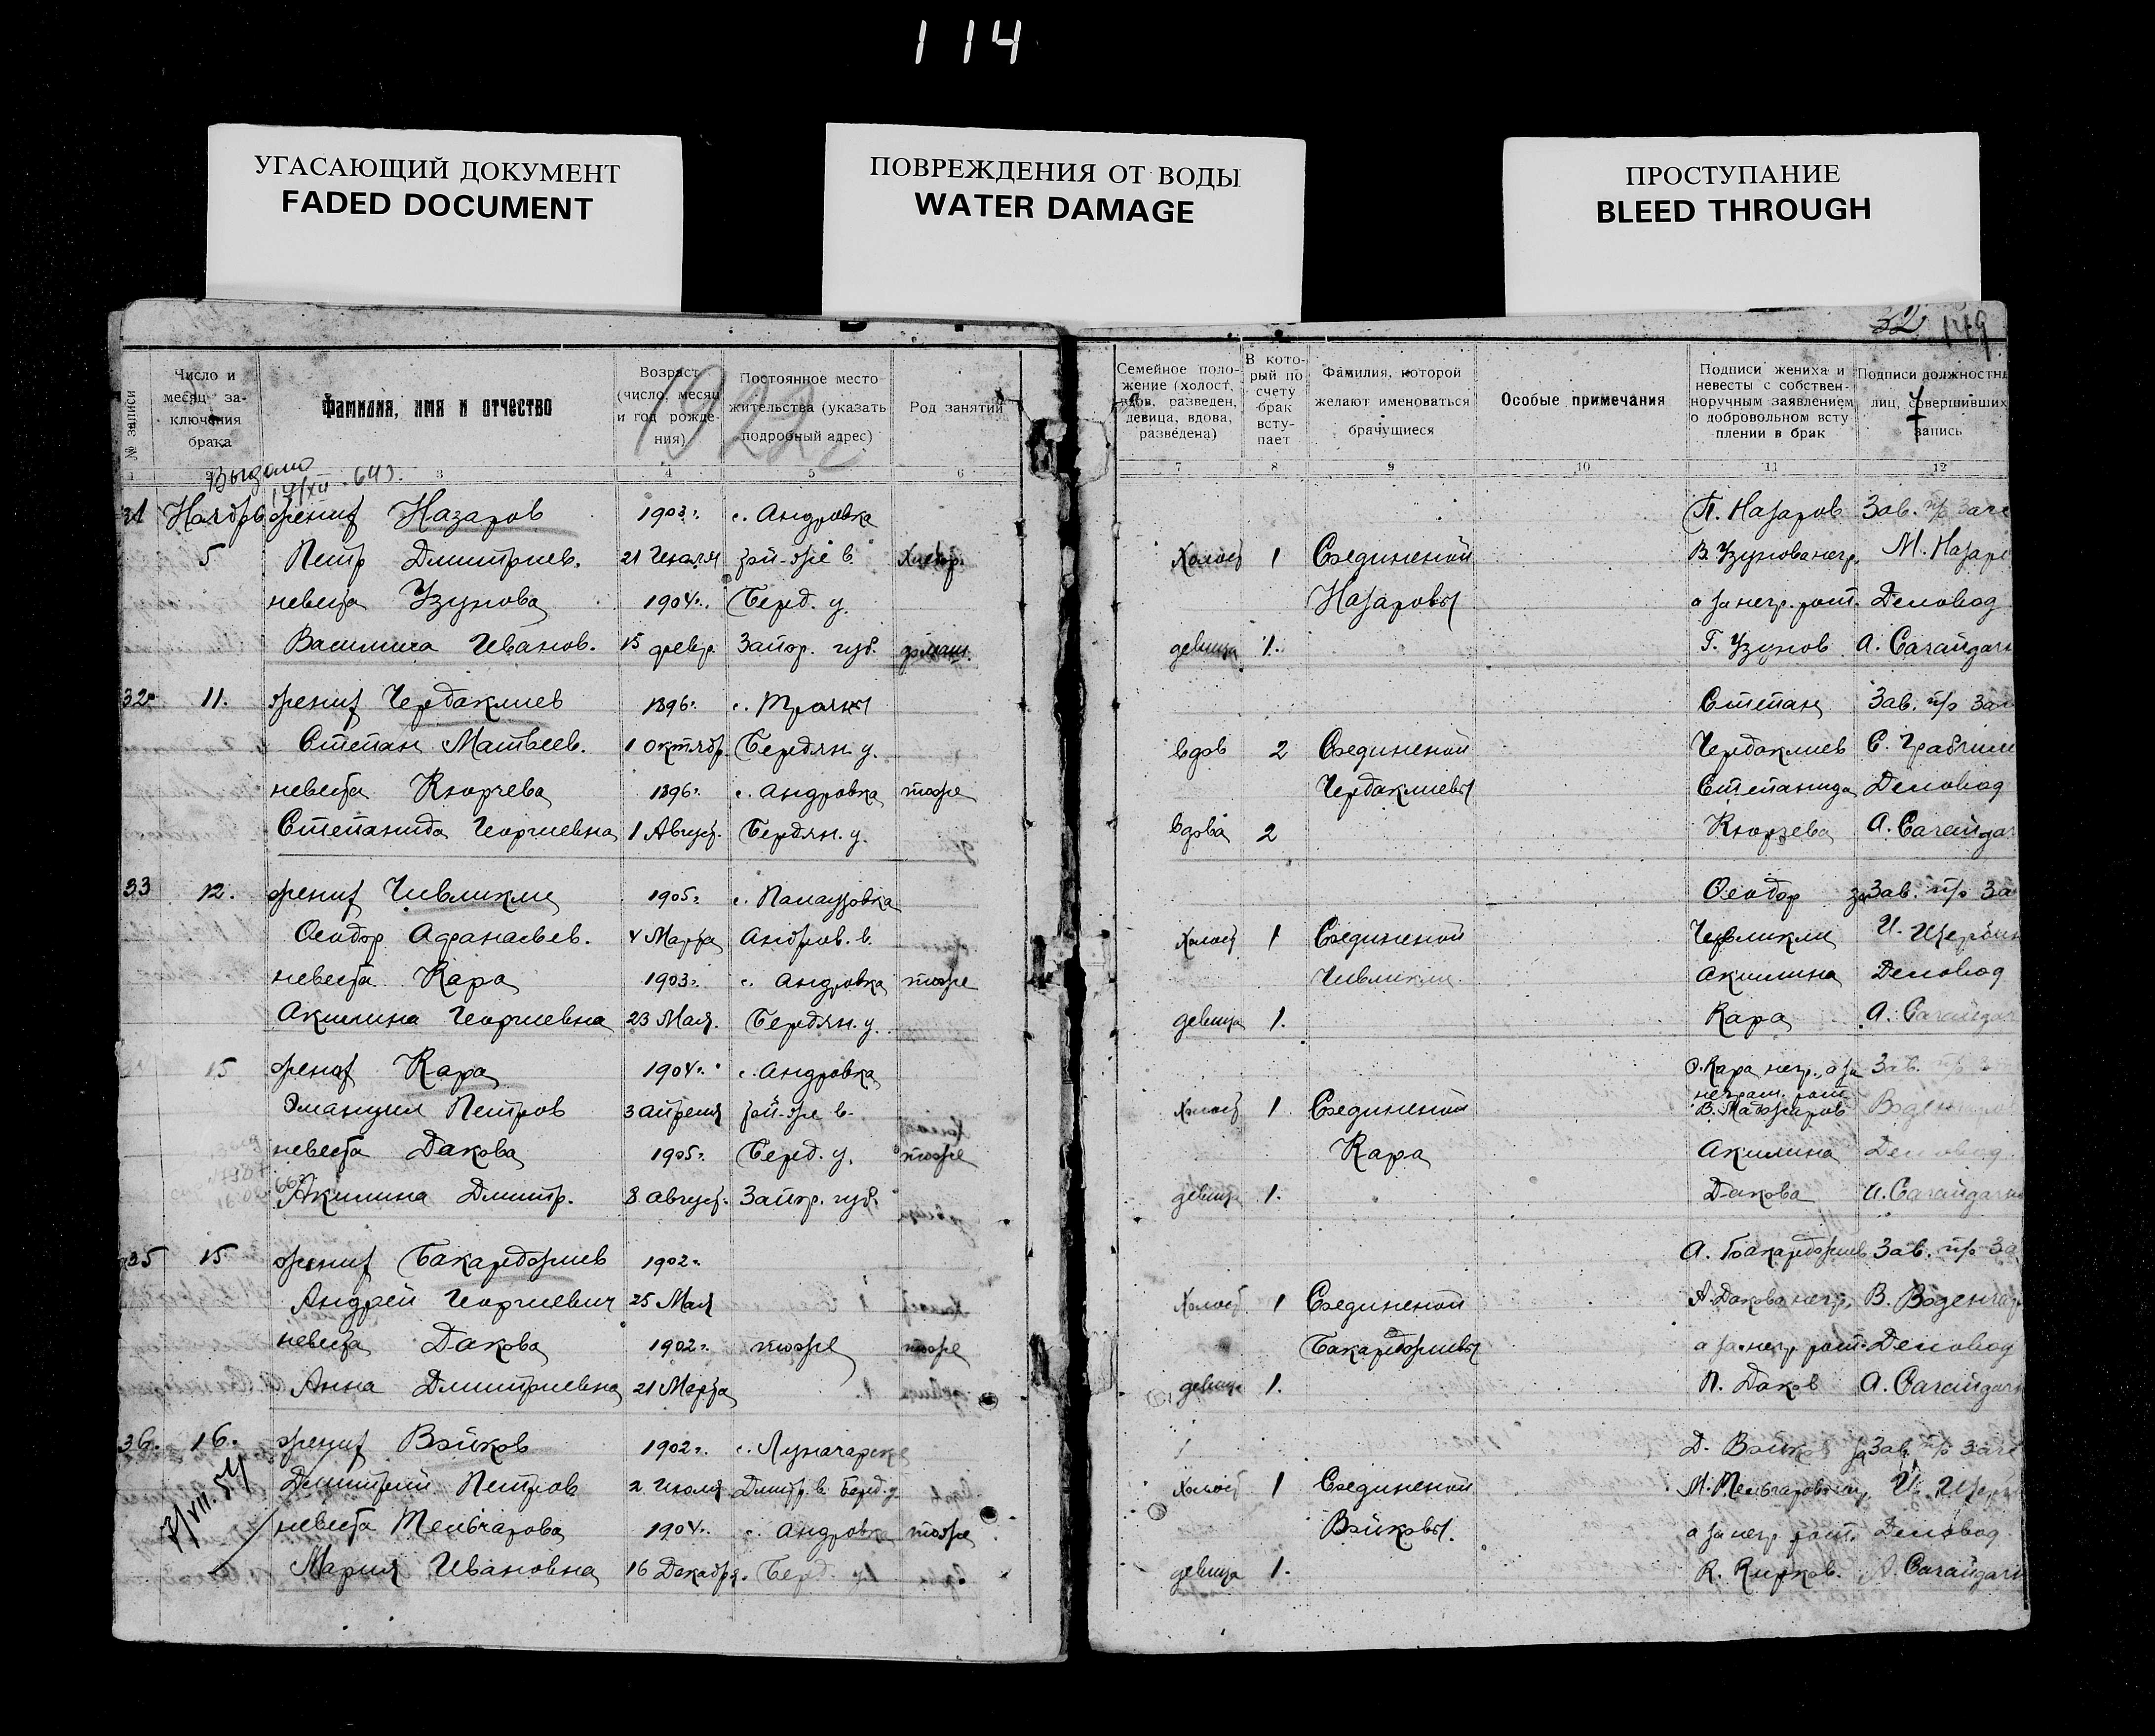 114
УГАСАЮЩИЙ ДОКУМЕНТ
FADED DOCUMENT
ПОВРЕЖДЕНИЯ ОТ ВОДЫ
WATER DAMAGE
ПРОСТУПАНИЕ
BLEED THROUGH
32 149
№ записи
Число и месяц заключения брака
Фамилия, имя и отчество
Возраст (число, месяц и год рождения)
Постоянное место жительства (указать подробный адрес)
Род занятий
Семейное положение (холост, вдов, разведен, девица, вдова, разведена)
В который по счету брак вступает
Фамилия, которой желают именоваться брачущиеся
Особые примечания
Подписи жениха и невесты с собственноручным заявлением о добровольном вступлении в брак
Подписи должностн лиц, совершивших запись
1922 г
1 3 4 5 6 7 8 9 10 11 12
Выдано 17/XII 643.
31 Ноября жених Назаров 1903 г. с. Андровка П. Назаров Зав. п/о Заг
5 Петр Дмитриев. 21 Июля Холост 1 Соединеной В. Узунова негр. М. Назаро
невеста Узунова 1904 г. Берд. у. Назаровы а за негр. рош. Деловод
Василиса Иванов. 15 февр. Запор. губ. девица 1. Г. Узунов А. Сагайдачн
32 11. жених Чердаклиев 1896 г. с. Трояны Степан Зав. п/о Заг
Степан Матвеев. 1 октябр. Бердян. у. вдов 2 Соединеной Чердаклиев С.
невеста Кюрчева 1896 г. с. Андровка тоже Чердаклиевы Степанида Деловод
Степанида Георгиевна 1 Август. Бердян. у. вдова 2 Кюрчева А. Сагайдач
33 12. жених Чивликли 1905 г. с. Палаузовка Феодор за Зав. п/о За
Феодор Афанасьев. 4 Марта Андров. в. холост 1 Соединеной Чивликли И. Щербин
невеста Кара 1903 г. с. Андровка тоже Чивликли Акилина Деловод
Акилина Георгиевна 23 Мая. Бердян. у. девица 1. Кара А. Сагайдач
15 жених Кара 1904 г. с. Андровка Э. Кара негр., а за Зав.
Эмануил Петров 3 апреля холост 1 Соединеной неграм. рош. В. Маджаров
невеста Дакова 1905 г. Берд. у. тоже Кара Акилина Деловод
Акилина Дмитр. 8 август. Запор. губ. девица 1. Дакова А. Сагайдачн
35 15 жених Бакарджиев 1902 г. А. Бакарджиев Зав. п/о За
Андрей Георгиевич 25 Мая Холост 1 Соединеной А. Дакова негр. В. Воденчар
невеста Дакова 1902 г. тоже тоже Бакарджиевы а за негр. рош. Деловод
Анна Дмитриевна 21 Марта девица 1. П. Даков А. Сагайдачн
36. 16. жених Войков 1902 г. с. Луначарск Д. Войков за Зав. п/о Заг
Дмитрий Петров 2 июля Дмитр. в. Берд. у. холост 1 Соединеной И. Щер
7/VII.54 невеста Тельчарова 1904 г. с. Андровка тоже Войковы. а за негр. рош. Деловод
Мария Ивановна 16 Декабря. Берд. у. девица 1. К. Кирков. А. Сагайдачн